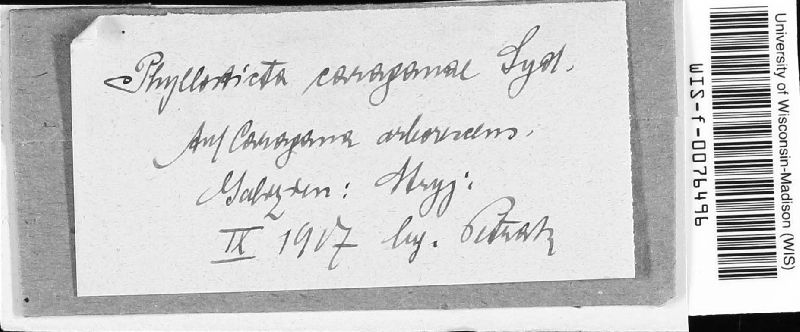 Phyllosticta caraganae Syd.
Auf Caragana arborescens.
Galizien: Stryj.
IX 1917 lg. Petrak
University of Wisconsin-Madison (WIS)
WIS-f-0076496